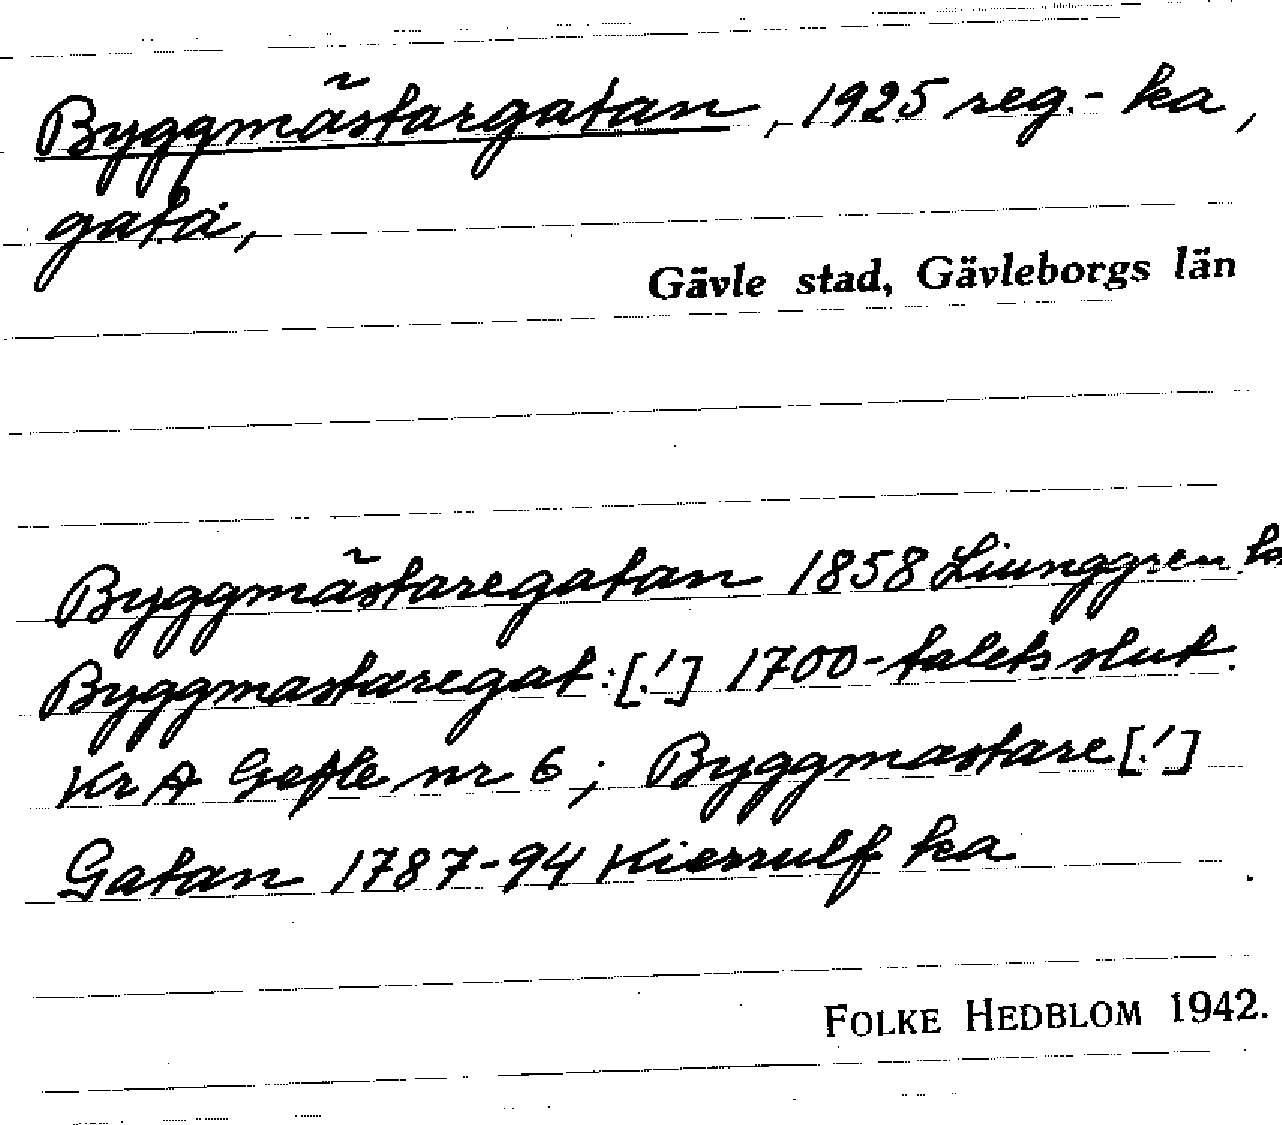 Byggmästargatan, 1925 reg.- ka,
gata,
Gävle stad, Gävleborgs län
Byggmästaregatan 1858 Liunggren
Byggmastaregat:[!] 1700-talets slut.
KrA Gefle nr 6; Byggmastare[!]
Gatan 1787-94 Kierrulf ka
FOLKE HEDBLOM 1942.